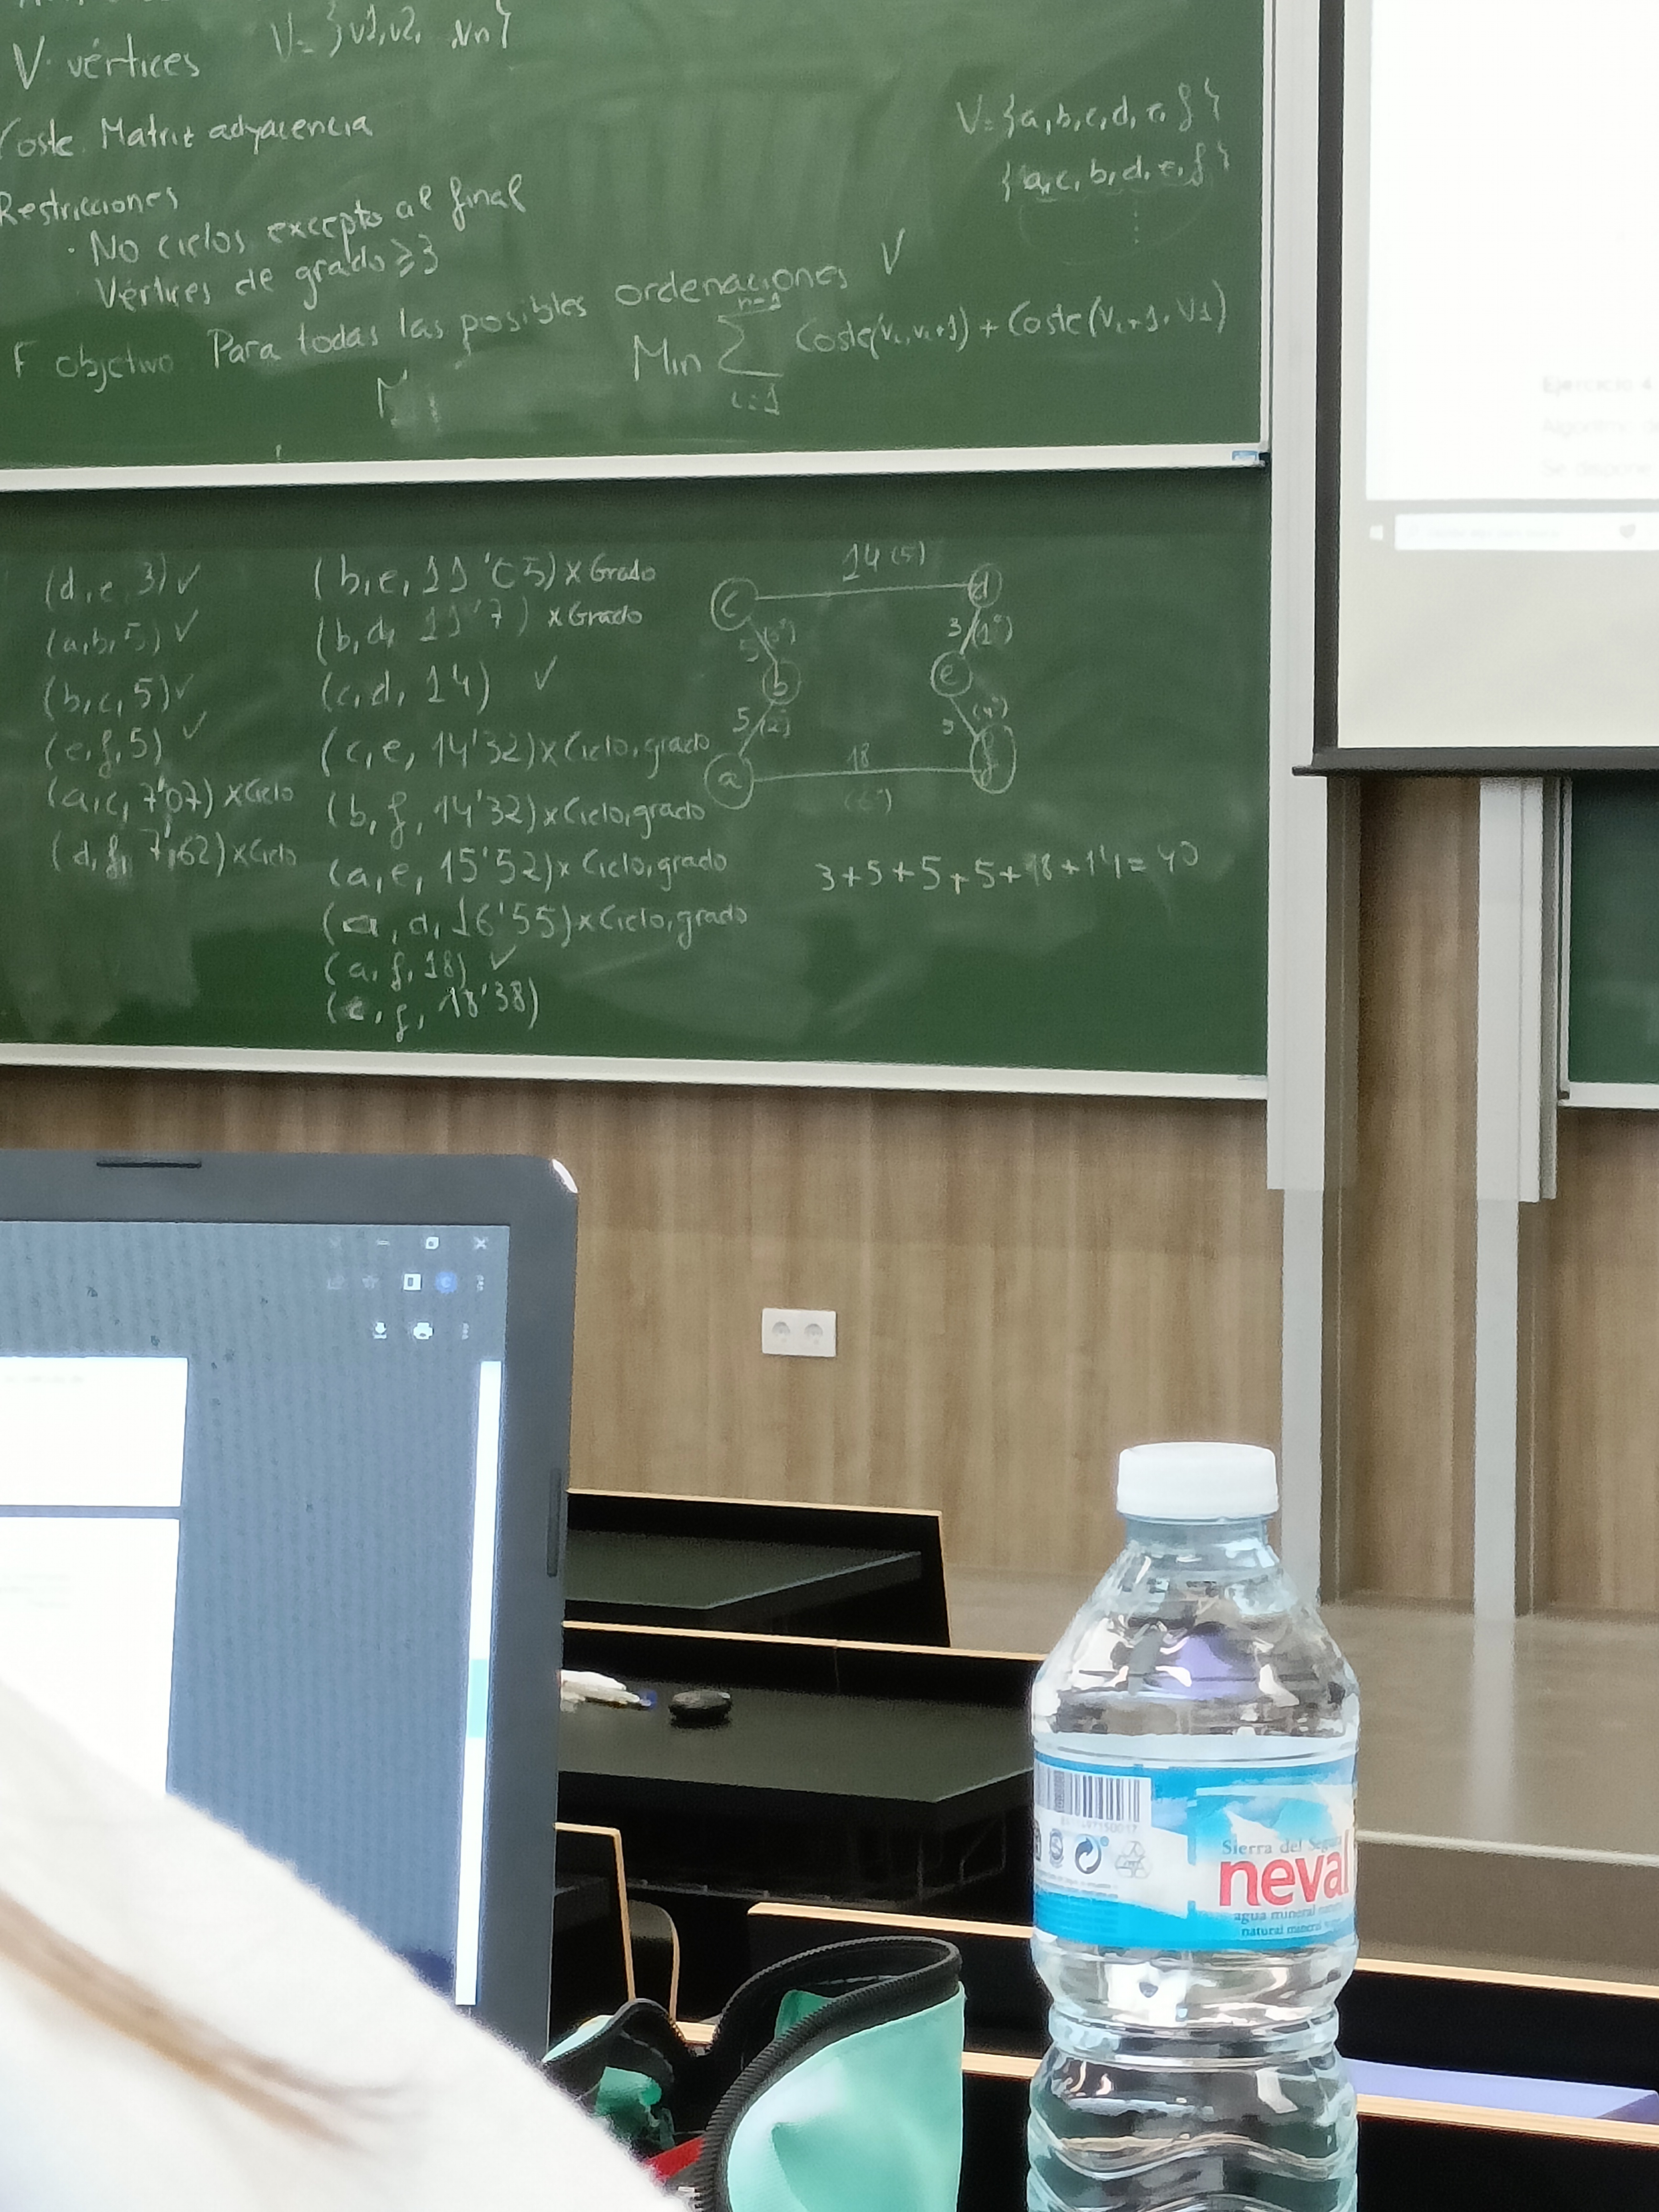 V: vértices V= {v1,v2, ,vn}
Coste Matriz adyacencia
Restricciones
· No ciclos excepto al final
Vértices de grado ≥3
F objetivo Para todas las posibles ordenaciones V
Min ∑ i=1 n-1 Coste(vi,vi+1) + Coste(vi+1, v1)
V={a,b,c,d,e,f}
{a,c,b,d,e,f}
(d,e,3) ✓
(a,b,5) ✓
(b,c,5) ✓
(e,f,5) ✓
(a,c,7'07) x Ciclo
(d,f,7'62) x Ciclo
(b,e,11'05) x Grado
(b,d,11'7) x Grado
(c,d,14) ✓
(c,e,14'32) x Ciclo, grado
(b,f,14'32) x Ciclo, grado
(a,e,15'52) x Ciclo, grado
(a,d,16'55) x Ciclo, grado
(a,f,18) ✓
(c,f,18'38)
14 (5)
c d
5 (3º) 3 (1º)
b e
5 (2º) 5 (4º)
a 18 f
(6º)
3+5+5+5+18+14=
Ejercicio 4
Algoritmo de
Se dispone
Sierra del Segura
neval
agua mineral
natural mineral